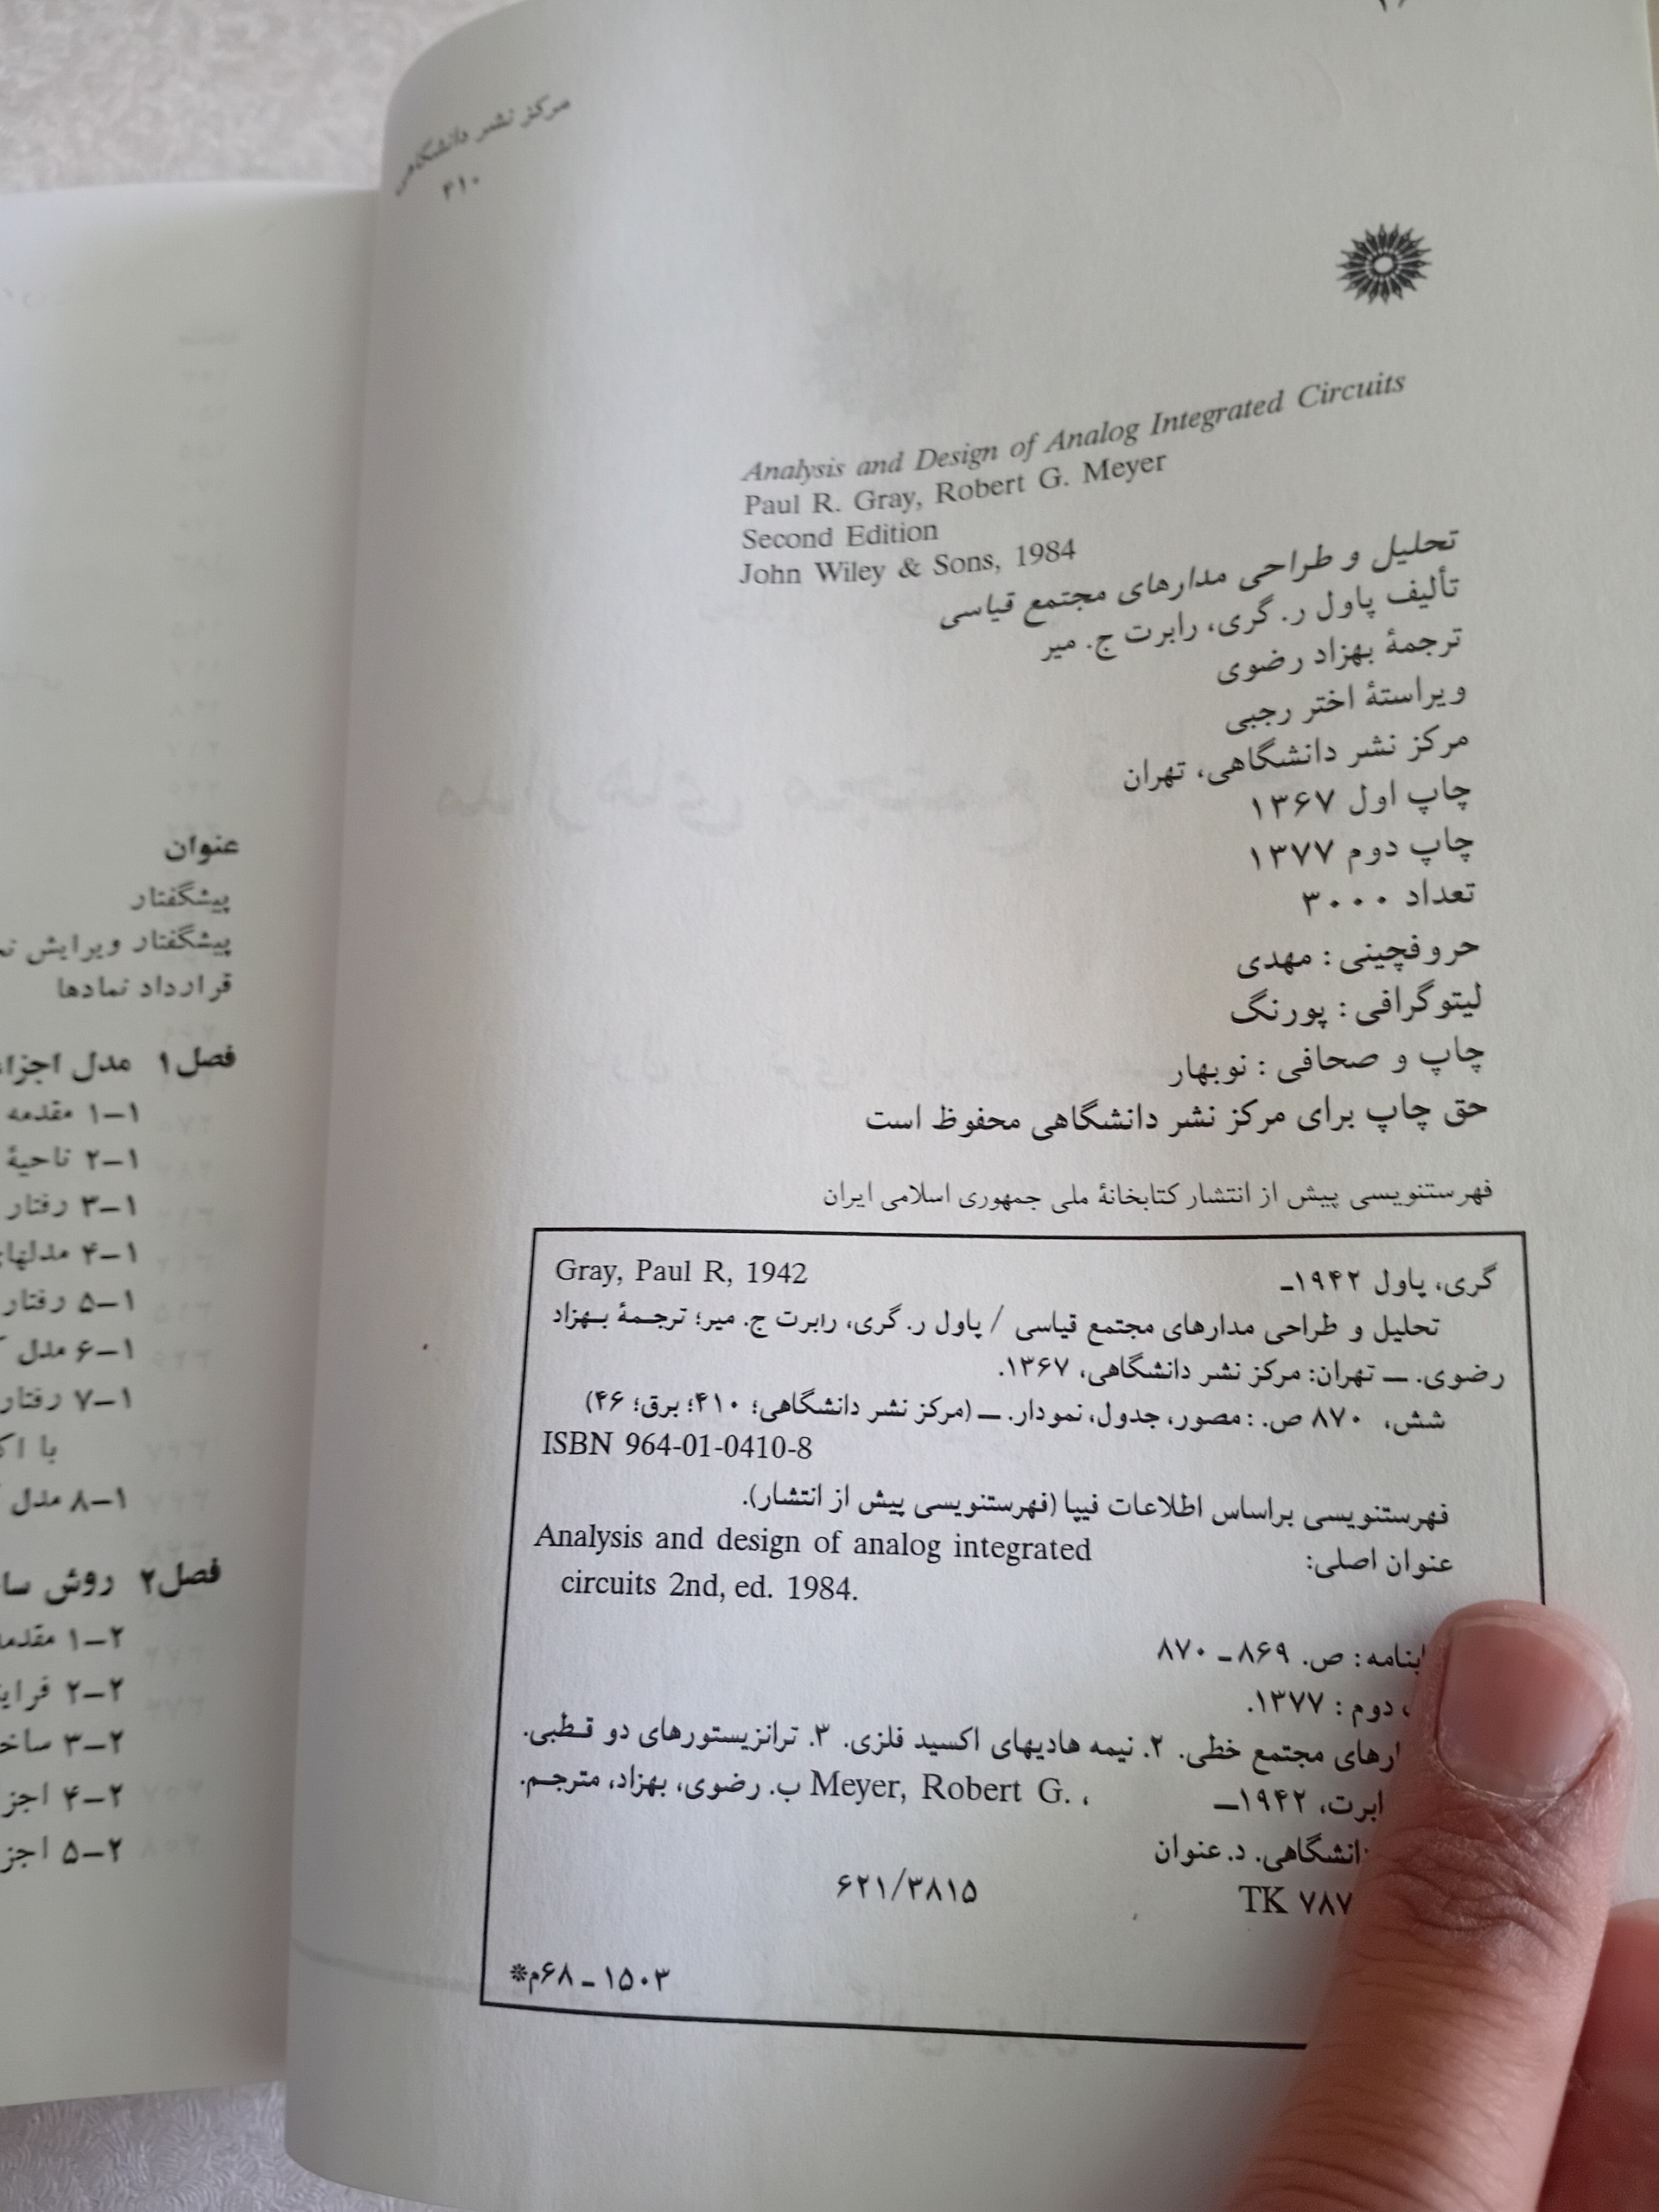 مرکز نشر دانشگاهی
۴۱۰
Analysis and Design of Analog Integrated Circuits
Paul R. Gray, Robert G. Meyer
Second Edition
John Wiley & Sons, 1984
تحلیل و طراحی مدارهای مجتمع قیاسی
تألیف پاول ر. گری، رابرت ج. میر
ترجمهٔ بهزاد رضوی
ویراستهٔ اختر رجبی
مرکز نشر دانشگاهی، تهران
چاپ اول ۱۳۶۷
چاپ دوم ۱۳۷۷
تعداد ۳۰۰۰
حروفچینی : مهدی
لیتوگرافی : پورنگ
چاپ و صحافی : نوبهار
حق چاپ برای مرکز نشر دانشگاهی محفوظ است
فهرستنویسی پیش از انتشار کتابخانهٔ ملی جمهوری اسلامی ایران
گری، پاول ۱۹۴۲ـ Gray, Paul R, 1942
تحلیل و طراحی مدارهای مجتمع قیاسی / پاول ر. گری، رابرت ج. میر؛ ترجمهٔ بهزاد
رضوی. ـ تهران: مرکز نشر دانشگاهی، ۱۳۶۷.
شش، ۸۷۰ ص. : مصور، جدول، نمودار. ـ (مرکز نشر دانشگاهی؛ ۴۱۰؛ برق؛ ۴۶)
ISBN 964-01-0410-8
فهرستنویسی براساس اطلاعات فیپا (فهرستنویسی پیش از انتشار).
عنوان اصلی: Analysis and design of analog integrated
circuits 2nd, ed. 1984.
ص. ۸۶۹ ـ ۸۷۰
دوم : ۱۳۷۷.
مجتمع خطی. ۲. نیمه هادیهای اکسید فلزی. ۳. ترانزیستورهای دو قطبی.
۱۹۴۲ـ Meyer, Robert G. ، ب. رضوی، بهزاد، مترجم.
د. عنوان
TK ۷۸۷ ۶۲۱/۳۸۱۵
۱۵۰۳ ـ ۶۸م*
عنوان
پیشگفتار
پیشگفتار ویرایش
قرارداد نمادها
فصل ۱ مدل اجزا
۱–۱ مقدمه
۱–۲ ناحیهٔ
۱–۳ رفتار
۱–۴ مدلهای
۱–۵ رفتار
۱–۶ مدل
۱–۷ رفتار
با
۱–۸ مدل
فصل ۲ روش
۲–۱ مقدمه
۲–۲
۲–۳
۲–۴
۲–۵